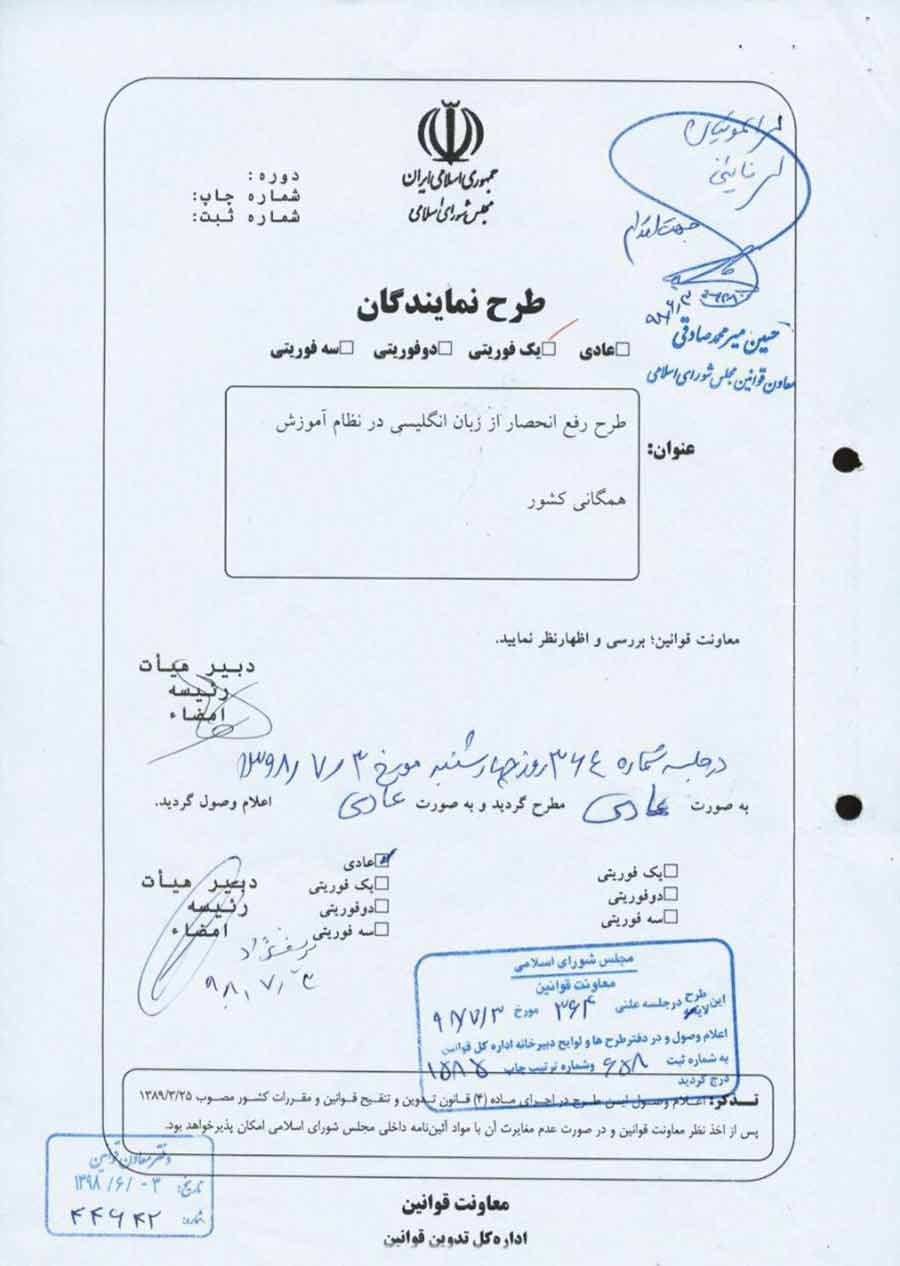 جمهوری اسلامی ایران
مجلس شورای اسلامی
دوره:
شماره چاپ:
شماره ثبت:
جهت اقدام
حسین میرمحمدصادقی
معاون قوانین مجلس شورای اسلامی
طرح نمایندگان
عادی یک فوریتی دوفوریتی سه فوریتی
عنوان:
طرح رفع انحصار از زبان انگلیسی در نظام آموزش
همگانی کشور
معاونت قوانین؛ بررسی و اظهارنظر نمایید.
دبیر هیأت
رئیسه
امضاء
در جلسه شماره ۳۶۴ روز چهارشنبه مورخ ۱۳۹۸/۷/۳
به صورت عادی مطرح گردید و به صورت عادی اعلام وصول گردید.
یک فوریتی
دوفوریتی
سه فوریتی
عادی
یک فوریتی
دوفوریتی
سه فوریتی
دبیر هیأت
رئیسه
امضاء
۹۸/۷/۳
مجلس شورای اسلامی
معاونت قوانین
این طرح لایحه در جلسه علنی ۳۶۴ مورخ ۹۸/۷/۳
اعلام وصول و در دفتر طرح ها و لوایح دبیرخانه اداره کل قوانین
به شماره ثبت ۶۵۸ و شماره ترتیب چاپ ۱۵۸۵
درج گردید
تذکر: اعلام وصول این طرح در اجرای ماده (۴) قانون تدوین و تنقیح قوانین و مقررات کشور مصوب ۱۳۸۹/۳/۲۵
پس از اخذ نظر معاونت قوانین و در صورت عدم مغایرت آن با مواد آئین‌نامه داخلی مجلس شورای اسلامی امکان پذیر خواهد بود.
دفتر معاون قوانین
تاریخ: ۱۳۹۸/۶/۰۳
شماره: ۴۴۶۴۲
معاونت قوانین
اداره کل تدوین قوانین